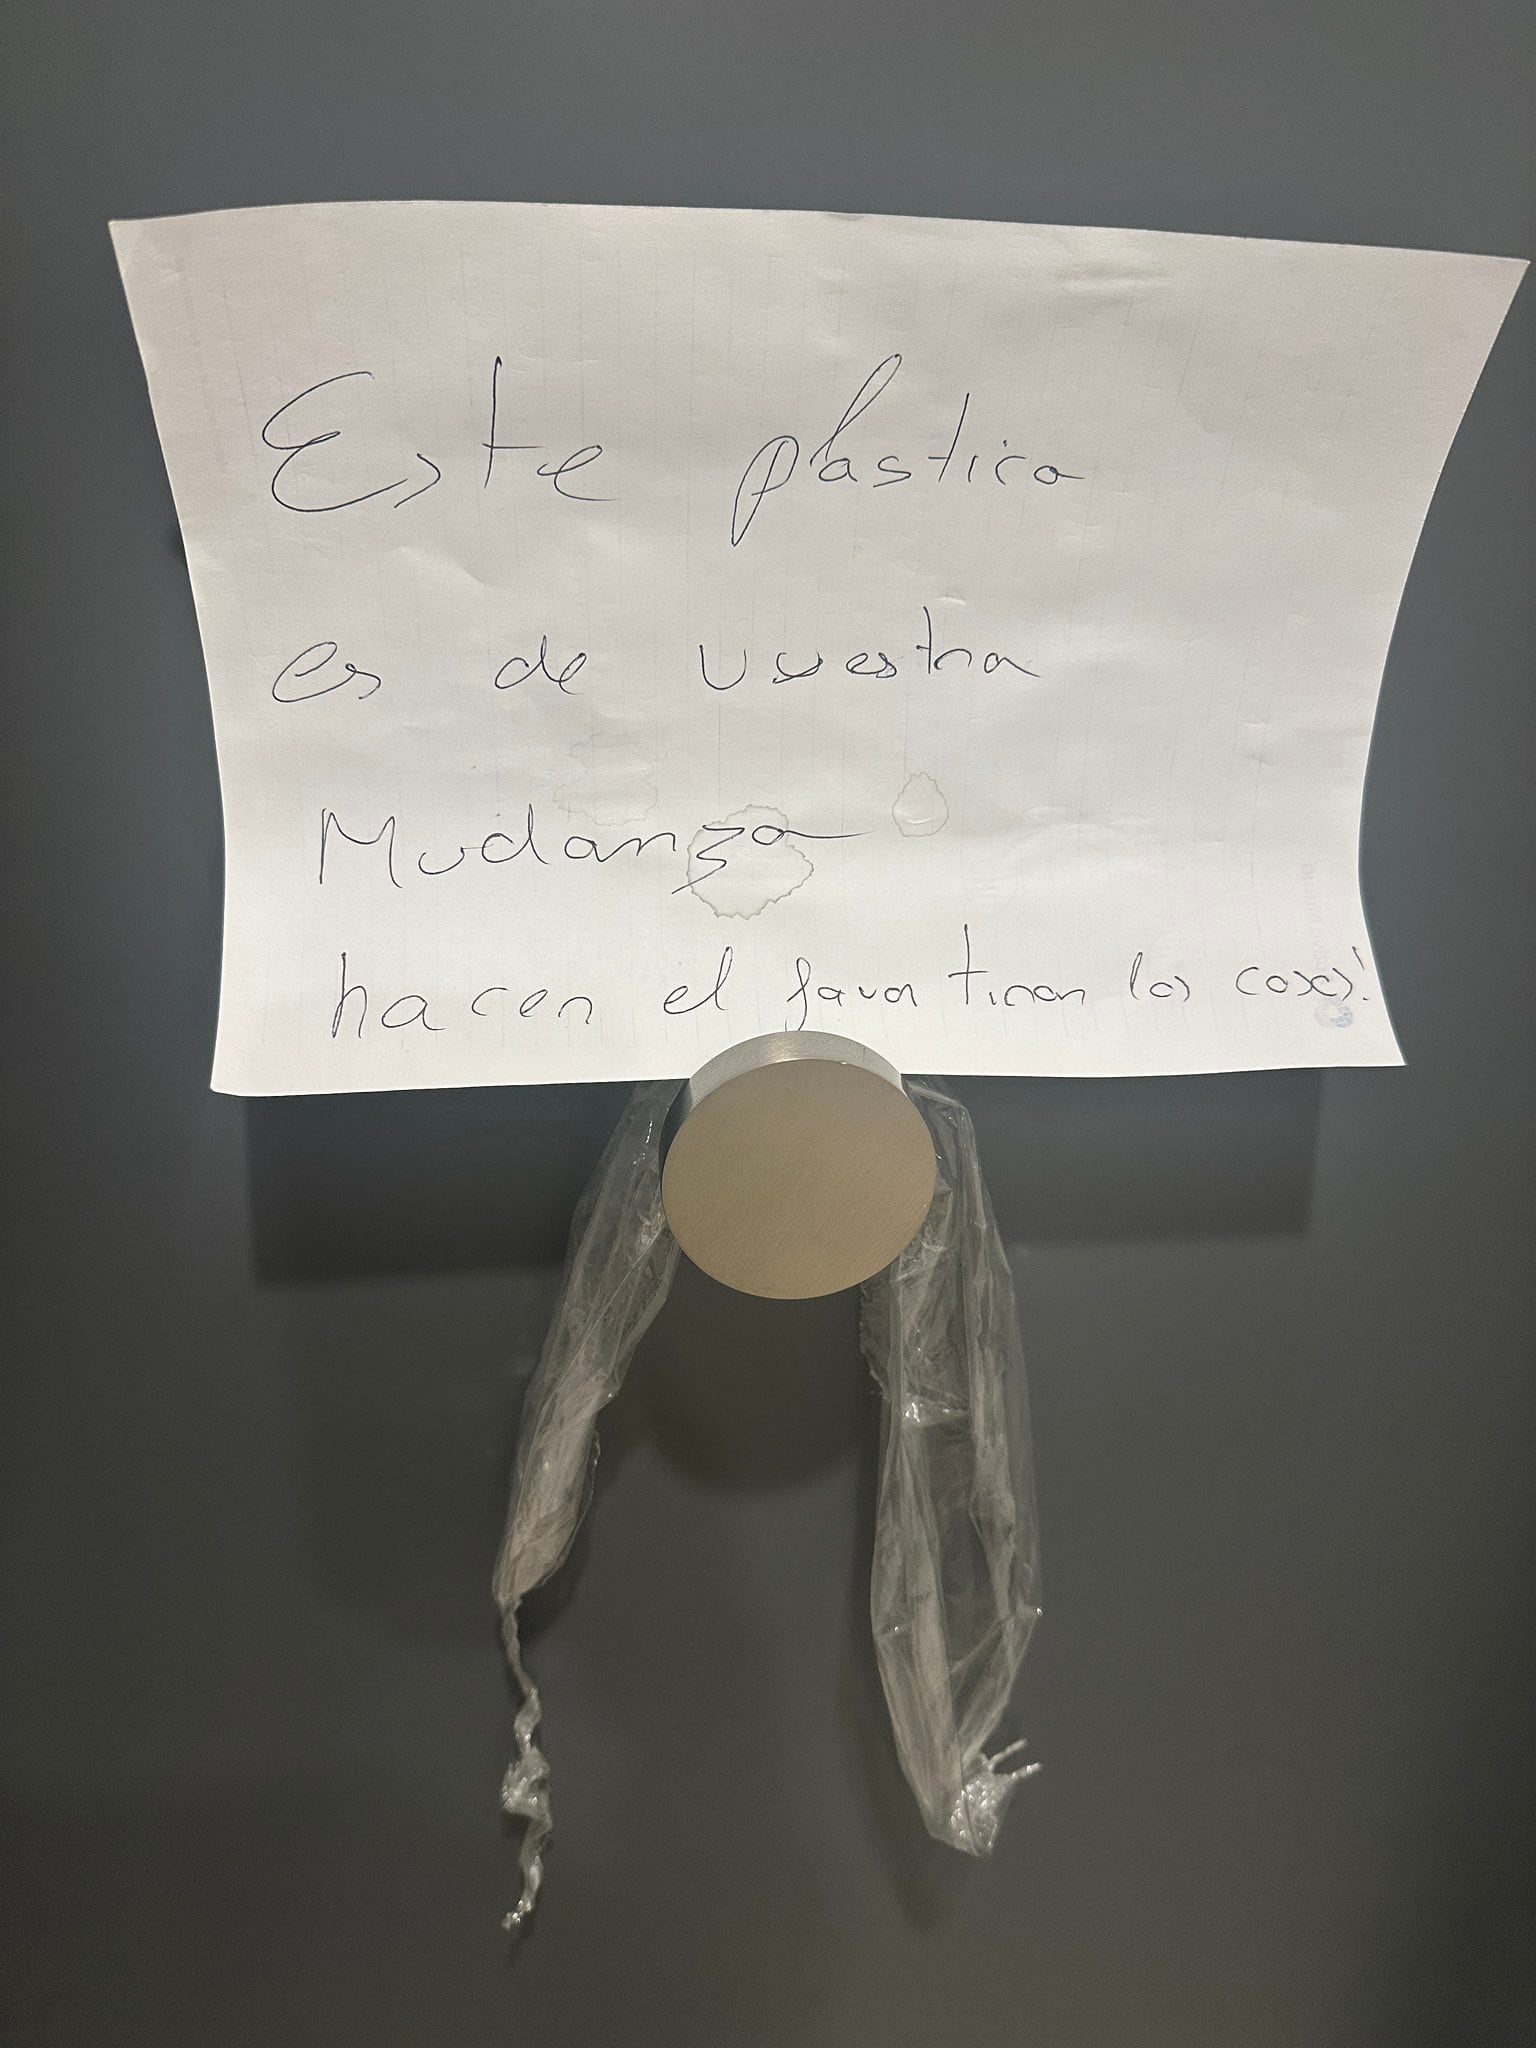 Este plastico
es de vuestra
Mudanza
hacen el favor tiran las cosas!